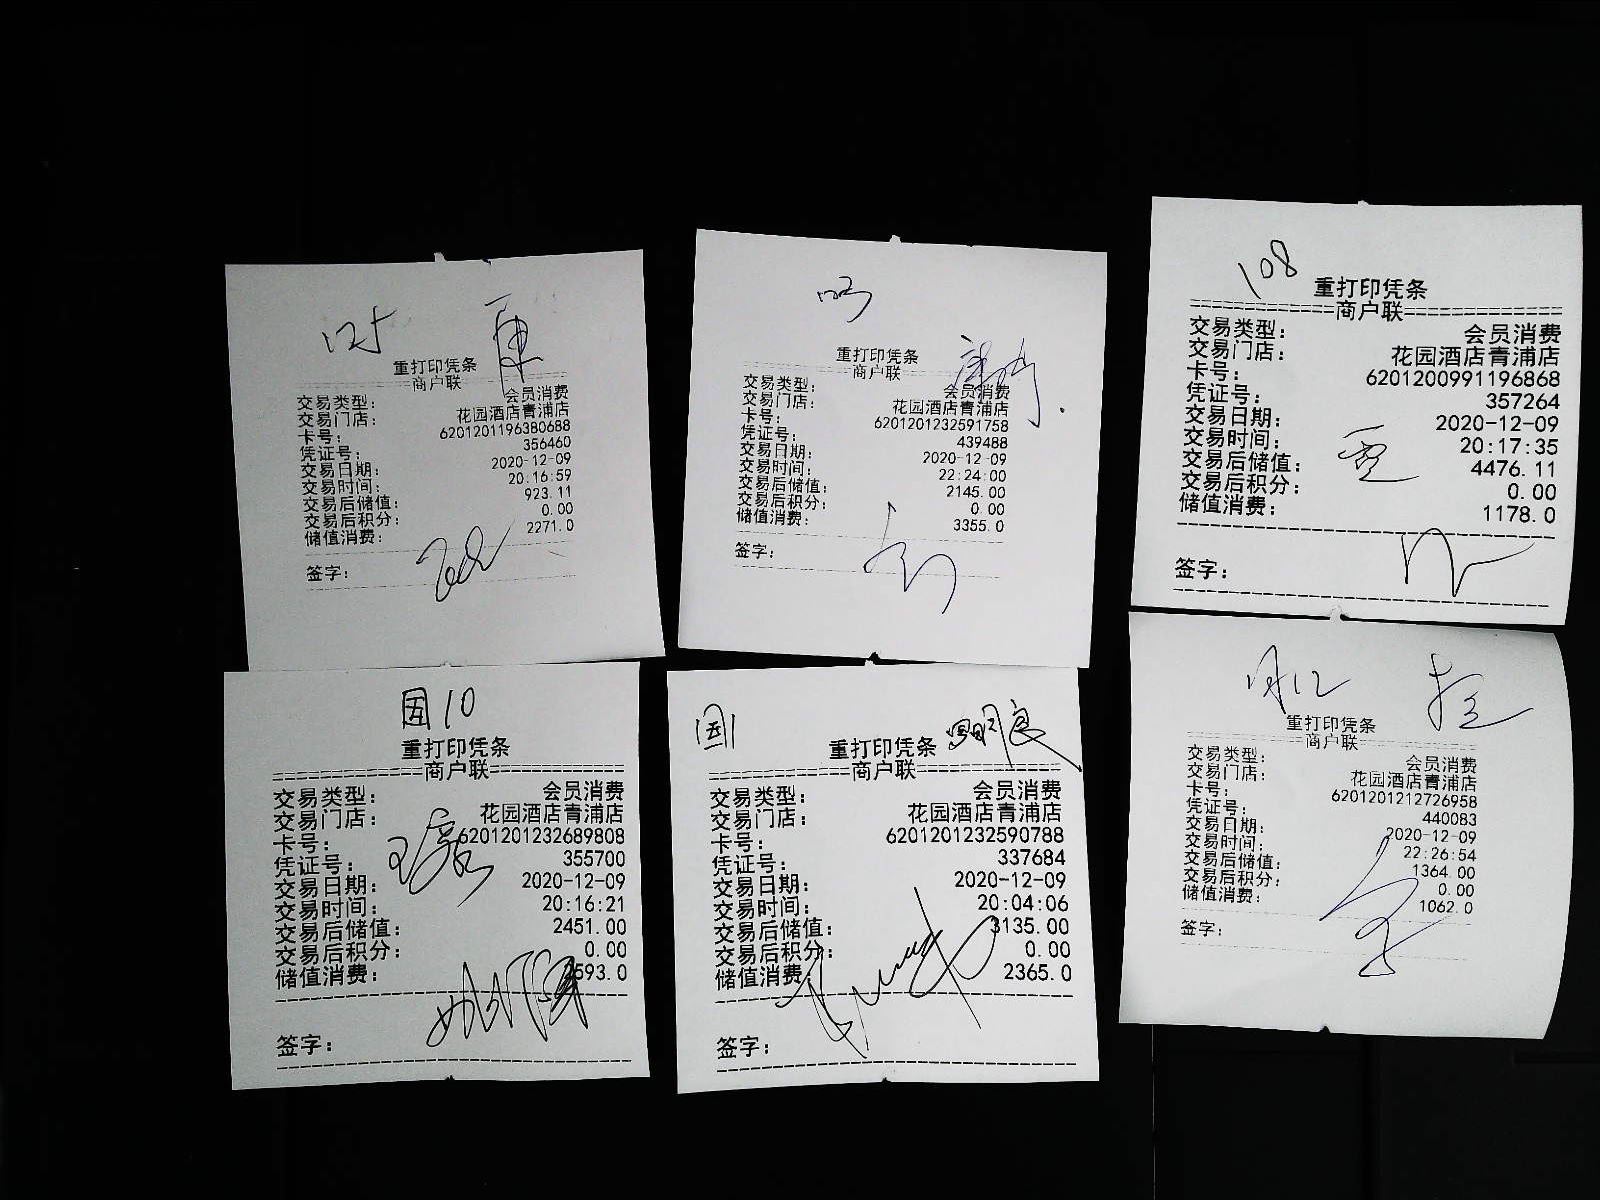 125
重打印凭条
商户联
交易类型: 会员消费
交易门店: 花园酒店青浦店
卡号: 6201201196380688
凭证号: 356460
交易日期: 2020-12-09
交易时间: 20:16:59
交易后储值: 923.11
交易后积分: 0.00
储值消费: 2271.0
签字:
重打印凭条
商户联
交易类型: 会员消费
交易门店: 花园酒店青浦店
卡号: 6201201232591758
凭证号: 439488
交易日期: 2020-12-09
交易时间: 22:24:00
交易后储值: 2145.00
交易后积分: 0.00
储值消费: 3355.0
签字:
108
重打印凭条
商户联
交易类型: 会员消费
交易门店: 花园酒店青浦店
卡号: 6201200991196868
凭证号: 357264
交易日期: 2020-12-09
交易时间: 20:17:35
交易后储值: 4476.11
交易后积分: 0.00
储值消费: 1178.0
签字:
国10
重打印凭条
商户联
交易类型: 会员消费
交易门店: 花园酒店青浦店
卡号: 6201201232689808
凭证号: 355700
交易日期: 2020-12-09
交易时间: 20:16:21
交易后储值: 2451.00
交易后积分: 0.00
储值消费: 2593.0
签字:
国1
重打印凭条
商户联
交易类型: 会员消费
交易门店: 花园酒店青浦店
卡号: 6201201232590788
凭证号: 337684
交易日期: 2020-12-09
交易时间: 20:04:06
交易后储值: 3135.00
交易后积分: 0.00
储值消费: 2365.0
签字:
重打印凭条
商户联
交易类型: 会员消费
交易门店: 花园酒店青浦店
卡号: 6201201212726958
凭证号: 440083
交易日期: 2020-12-09
交易时间: 22:26:54
交易后储值: 1364.00
交易后积分: 0.00
储值消费: 1062.0
签字: